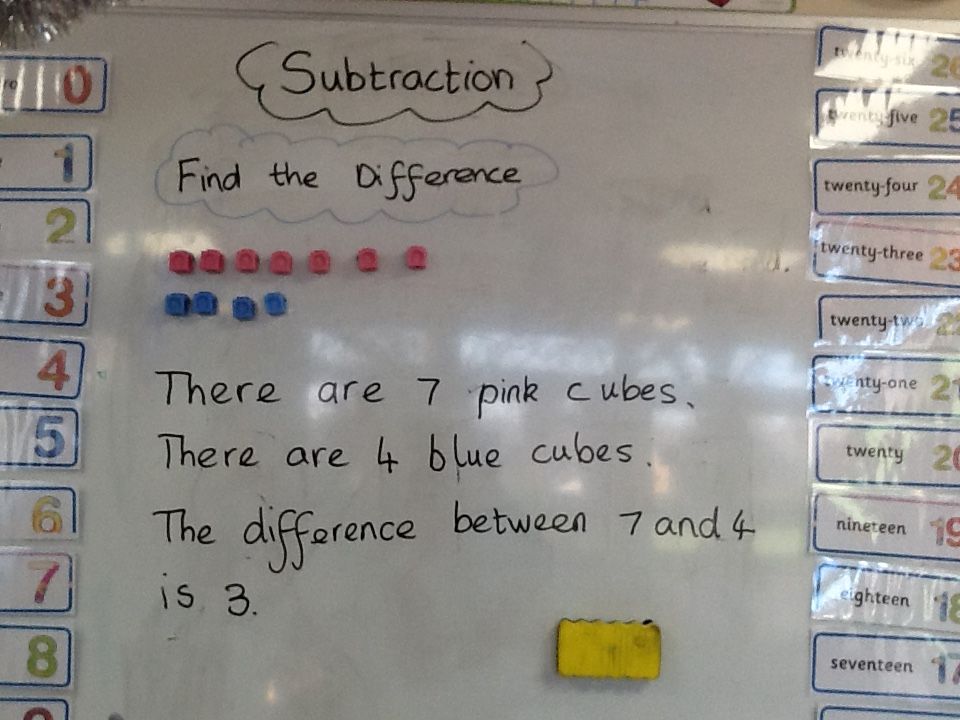 Subtraction
Find the Difference
There are 7 pink cubes.
There are 4 blue cubes.
The difference between 7 and 4
is 3.
0
1
2
3
4
5
6
7
8
twenty-six 26
twenty-five 25
twenty-four 24
twenty-three 23
twenty-two 22
twenty-one 21
twenty 20
nineteen 19
eighteen 18
seventeen 17